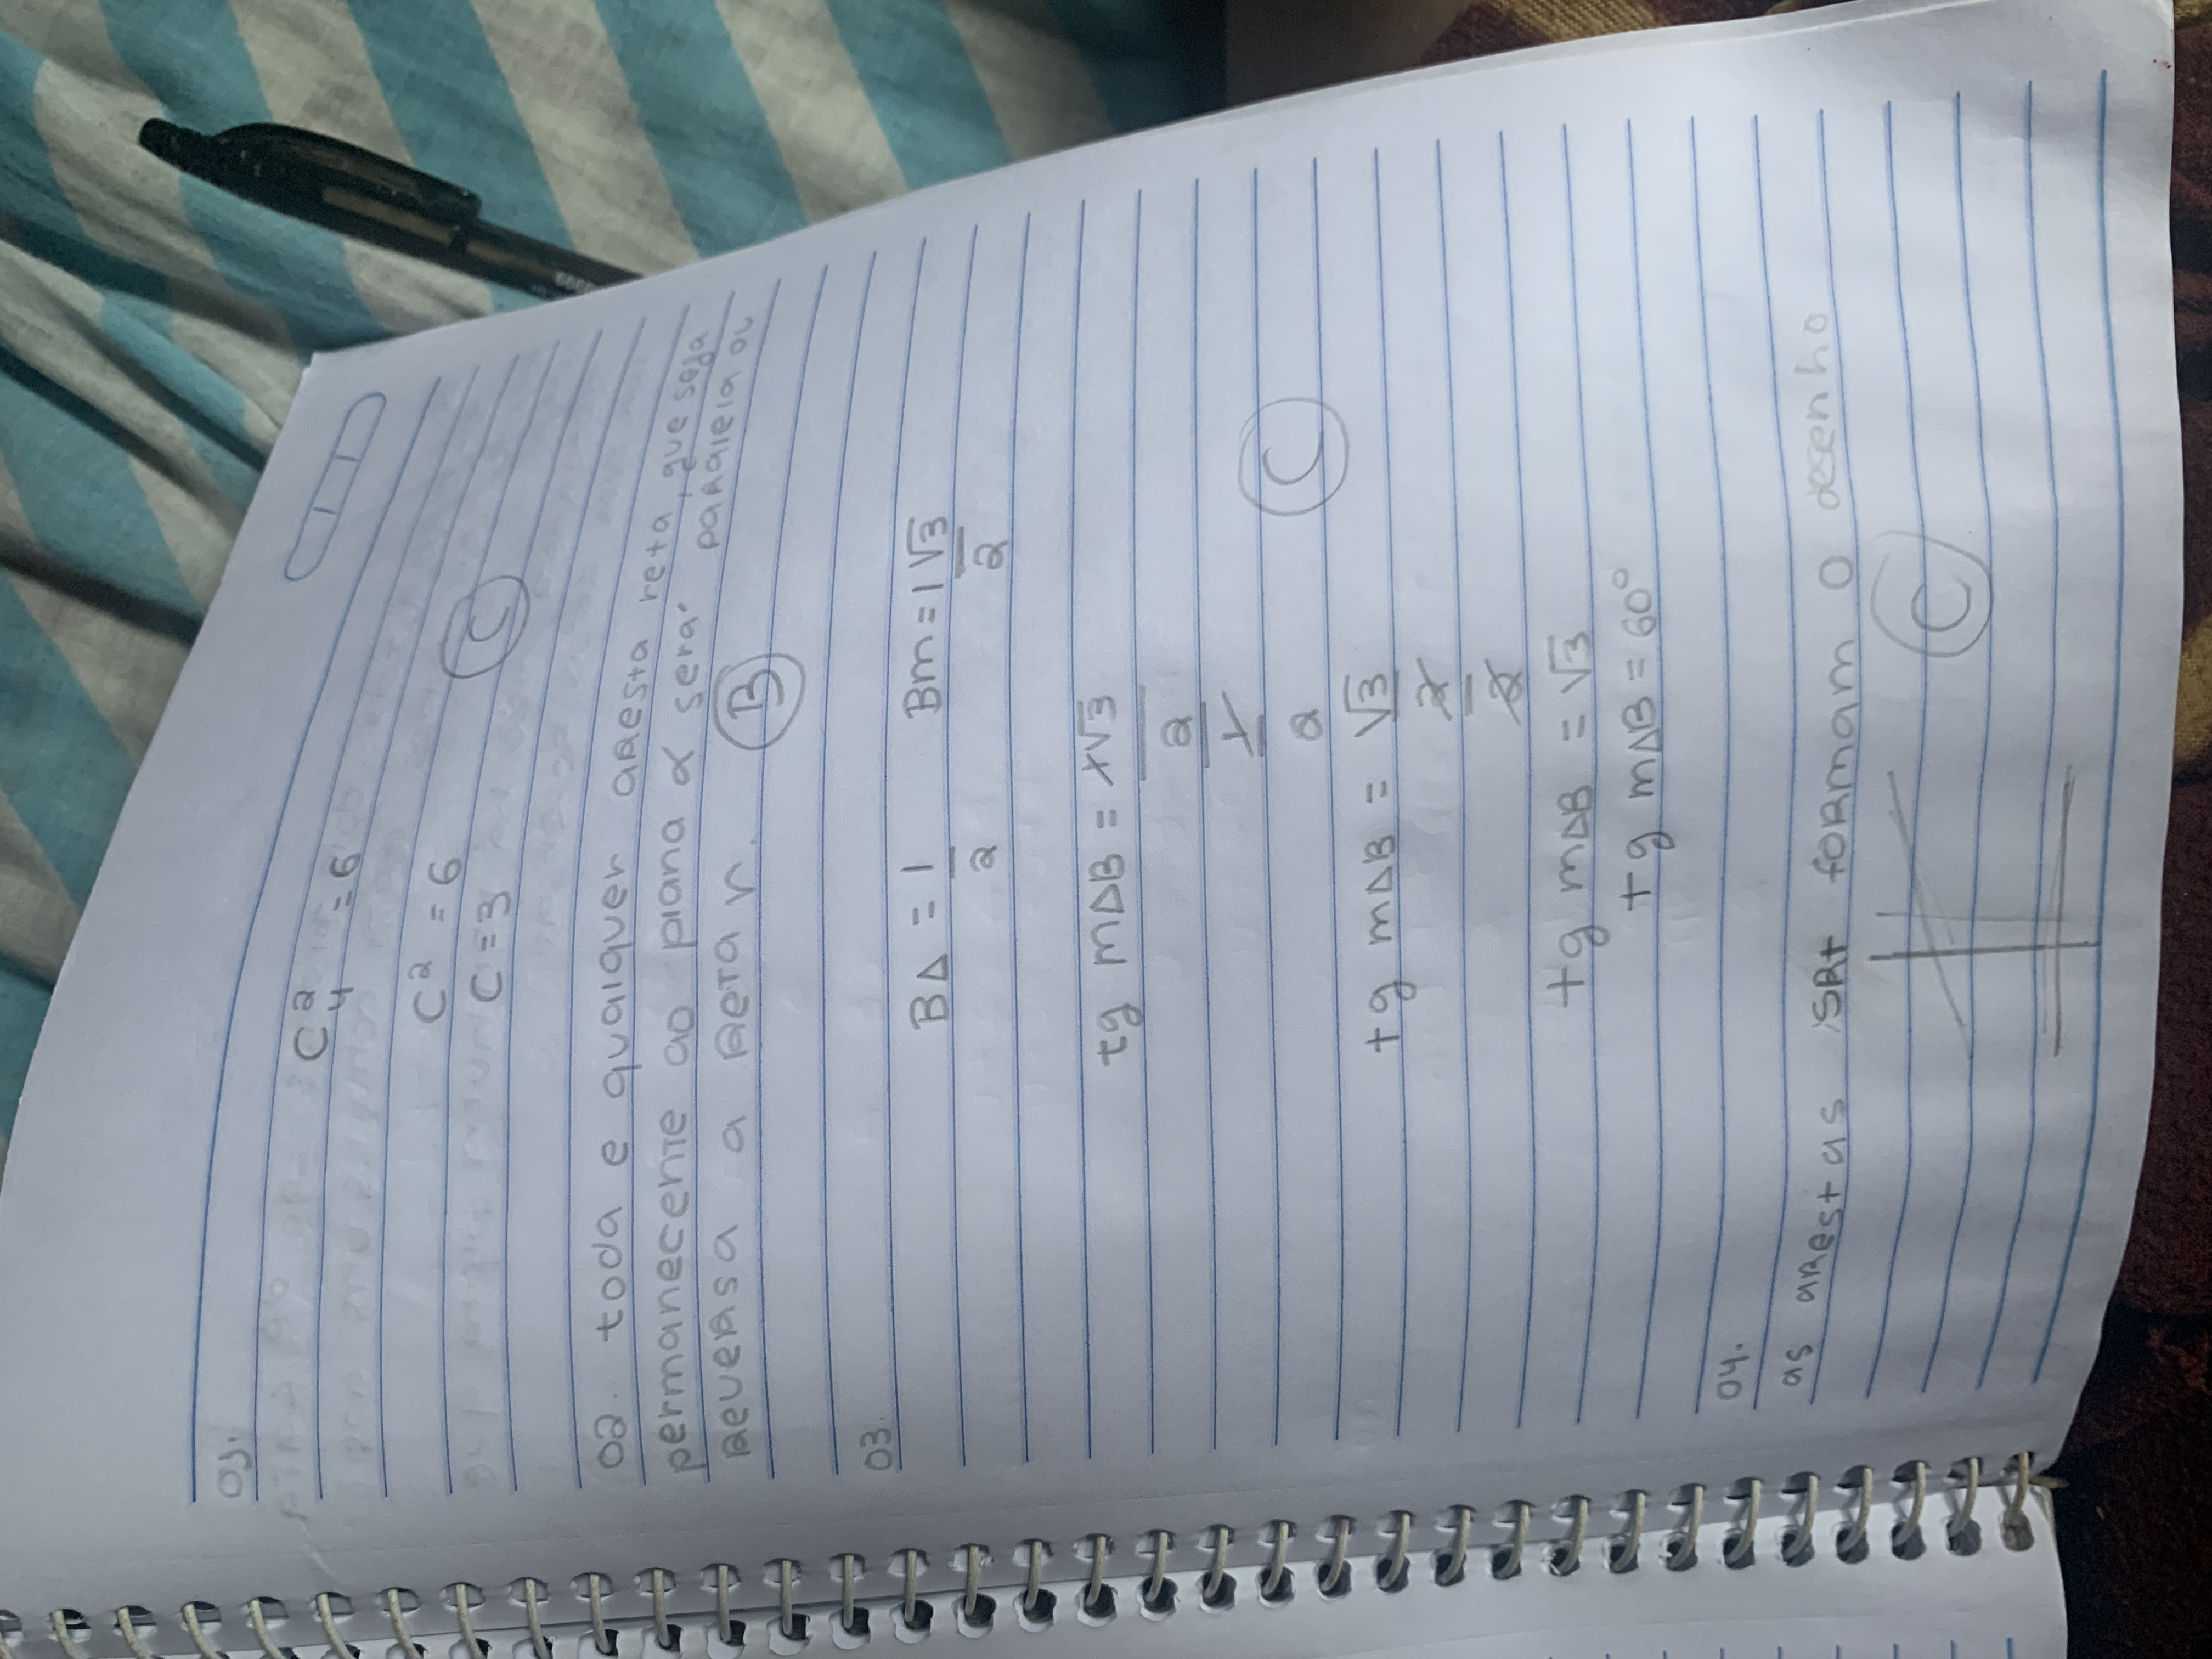 01.
C²₄ = 6
C² = 6
C = 3
C
02. toda e qualquer aresta reta, que seja
permanecente ao plana α será paralela ou
reversa a reta r.
B
03.
BΔ = 1/2 Bm = 1√3/2
tg mΔB = 1√3/2/1/2
C
tg mΔB = √3/2/2
tg mΔB = √3
tg mΔB = 60°
04.
as arestas SRt formam o desenho
C